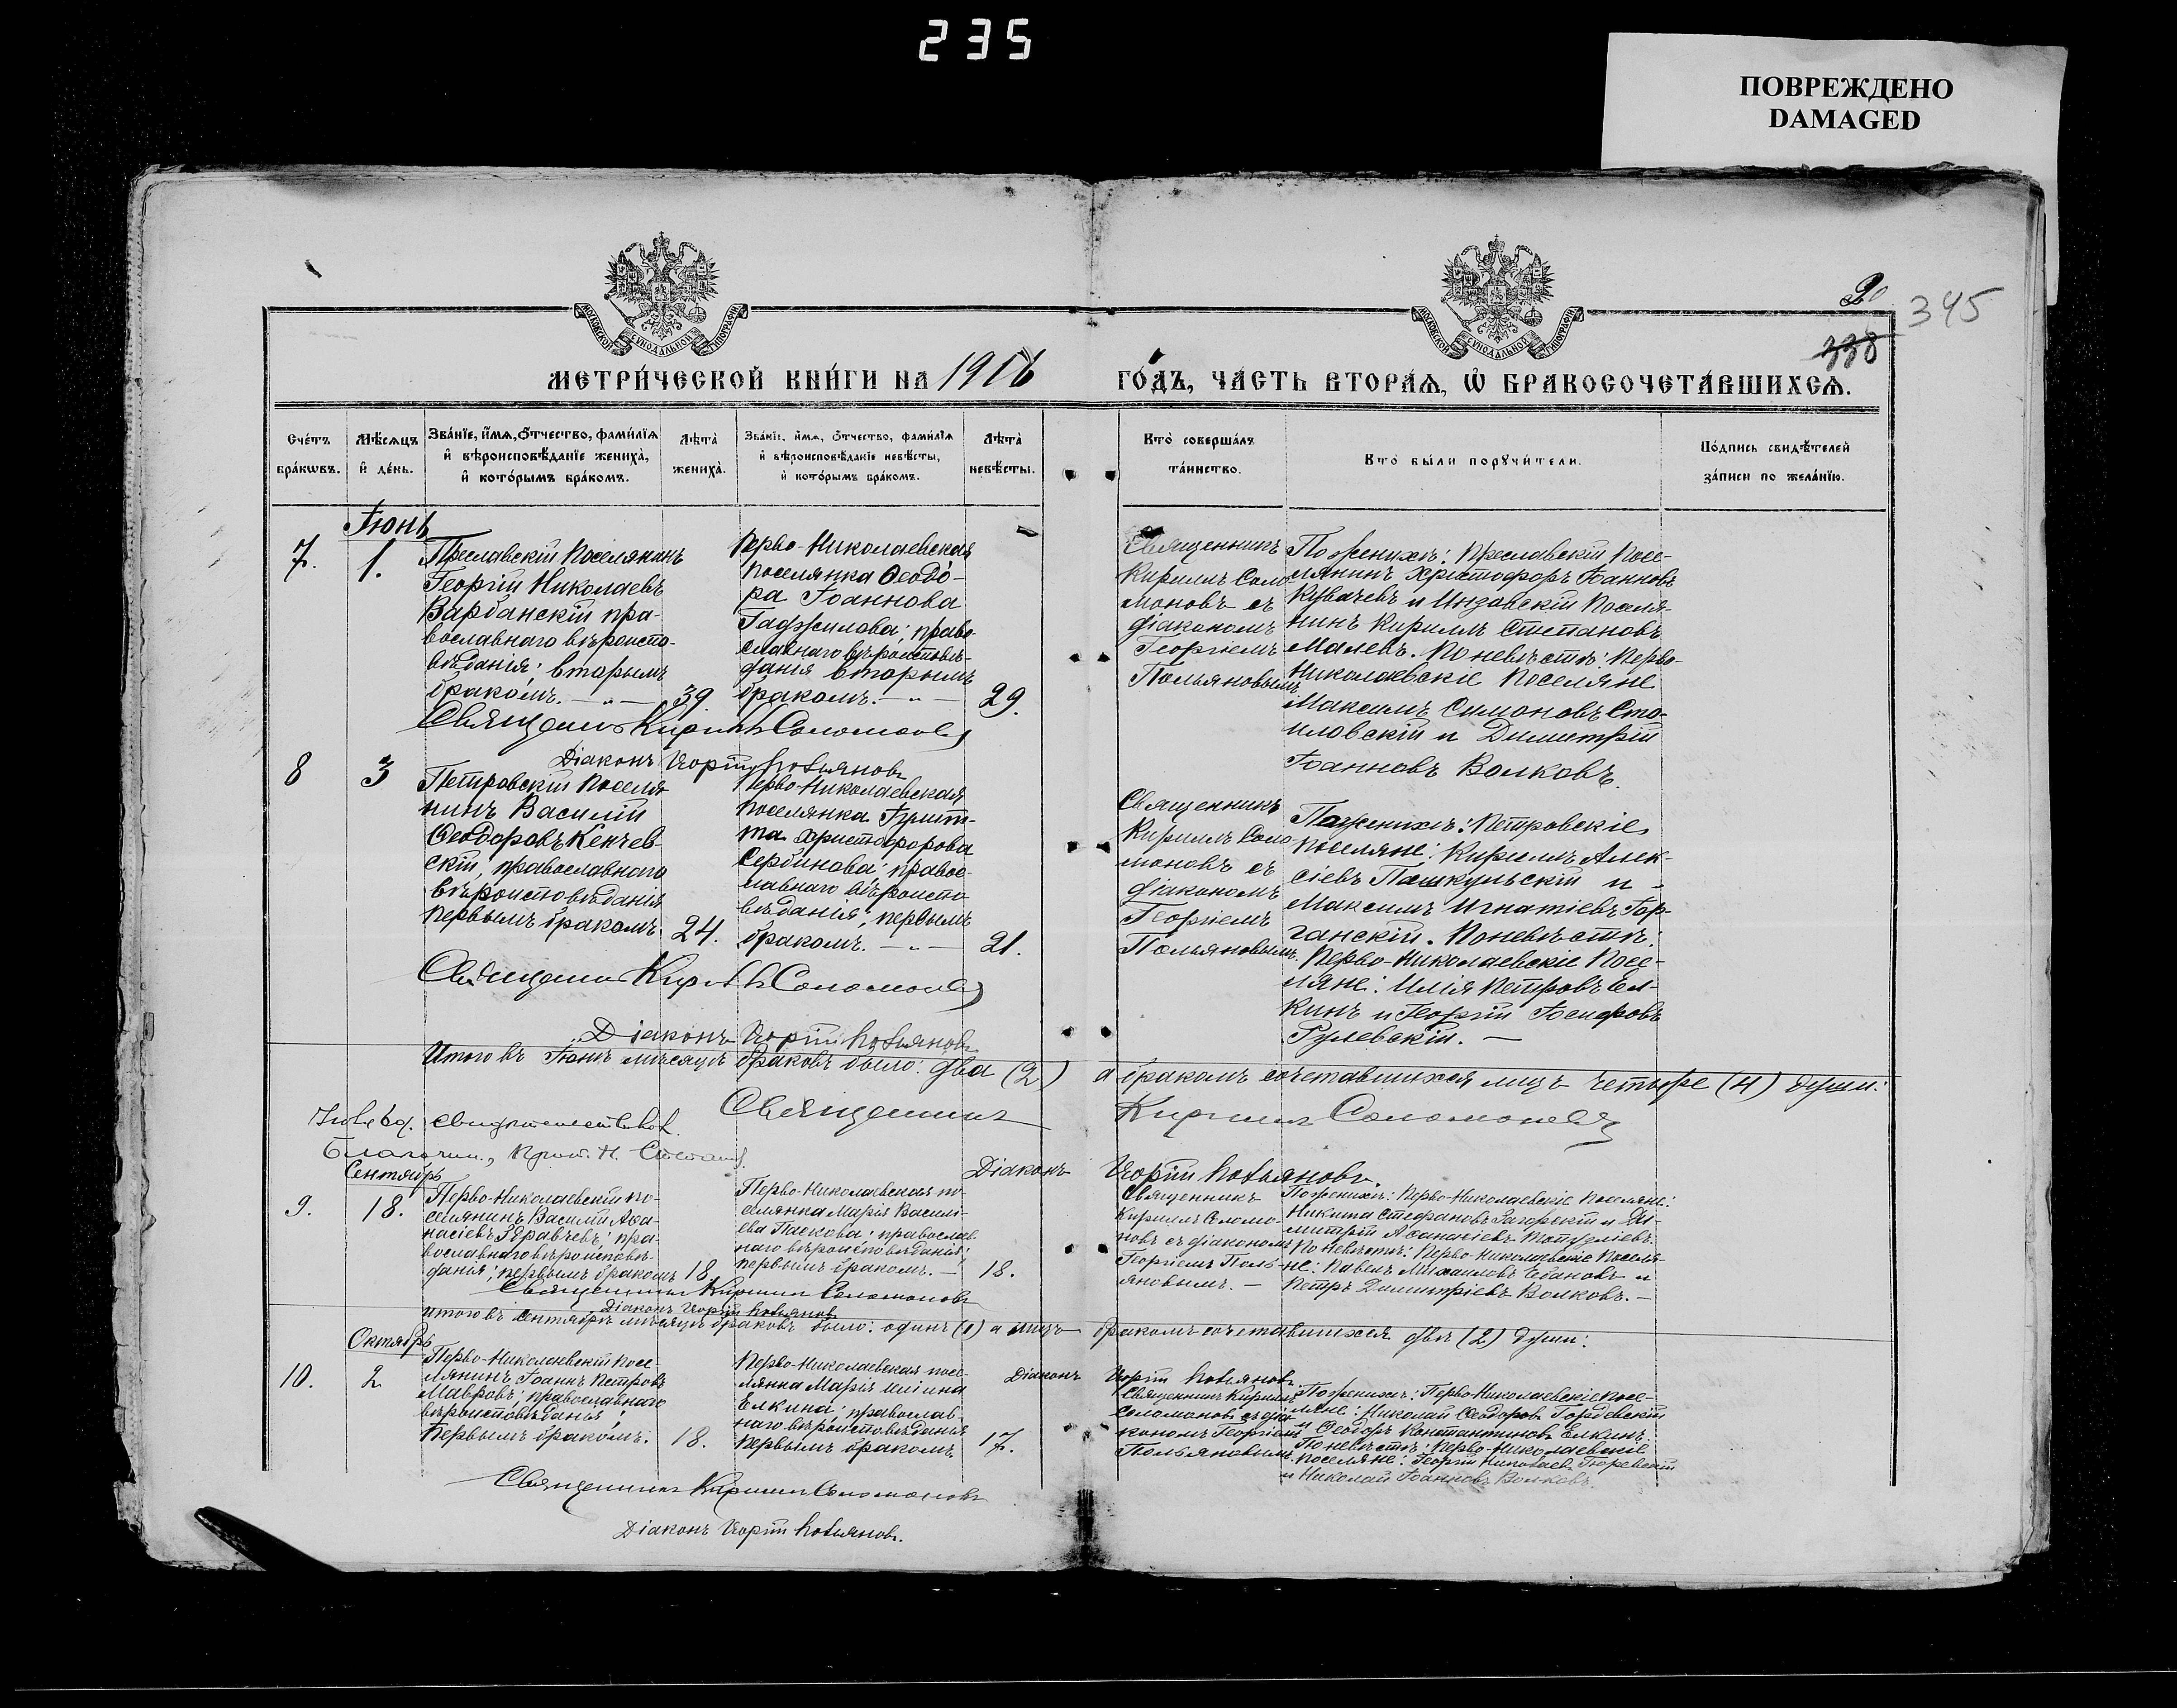 235
ПОВРЕЖДЕНО
DAMAGED
МОСКОВСКОЙ СѴНОДАЛЬНОЙ ТИПОГРАФІИ
МОСКОВСКОЙ СѴНОДАЛЬНОЙ ТИПОГРАФІИ
345
338
МЕТРИ́ЧЕСКОЙ КНИ́ГИ НА 1916 ГО́ДЪ, ЧА́СТЬ ВТОРА́Ѧ, Ѡ҆ БРАКОСОЧЕТА́ВШИХСѦ.
Сче́тъ
бра́кѡвъ.
Мѣ́сѧцъ
и҆ де́нь.
Зва́нїе, и҆́мѧ, ѻ҆́тчество, фами́лїѧ
и҆ вѣроисповѣ́данїе жениха̀,
и҆ кото́рымъ бра́комъ.
Лѣ́та̀
жениха̀.
Зва́нїе, и҆́мѧ, ѻ҆́тчество, фами́лїѧ
и҆ вѣроисповѣ́данїе невѣ́сты,
и҆ кото́рымъ бра́комъ.
Лѣ́та̀
невѣ́сты.
Кто̀ соверша́лъ
та́инство.
Кто̀ бы́ли порꙋчи́тели.
По́дпись свидѣ́телей
за́писи по жела́нїю.
Іюнь
7.
1.
Преславскій поселянинъ
Георгій Николаевъ
Варбанскій пра-
вославнаго вѣроиспо-
вѣданія; вторымъ
бракомъ. — „ —
39.
Перво-Николаевская
поселянка Ѳеодо-
ра Іоаннова
Гаджилова; право-
славнаго вѣроисповѣ-
данія вторымъ
бракомъ. — „ —
29.
Священникъ
Кириллъ Соло-
моновъ съ
діакономъ
Георгіемъ
Польяновымъ
По женихѣ: Преславскій посе-
лянинъ Христофоръ Іоанновъ
Кувачевъ и Инзовскій поселя-
нинъ Кириллъ Степановъ
Малевъ. По невѣстѣ: Перво-
Николаевскіе поселяне
Максимъ Симоновъ Сто-
иловскій и Димитрій
Іоанновъ Волковъ.
Священникъ Кириллъ Соломоновъ
Діаконъ Георгій Польяновъ
8
3
Петровскій поселя
нинъ Василій
Ѳеодоровъ Кенчев-
скій, православнаго
вѣроисповѣданія
первымъ бракомъ.
24.
Перво-Николаевская
поселянка
та Христофорова
Сербинова; правос-
лавнаго вѣроиспо
вѣданія; первымъ
бракомъ. — „ —
21.
Священникъ
Кириллъ Соло-
моновъ съ
діакономъ
Георгіемъ
Польяновымъ.
По женихѣ: Петровскіе
поселяне: Кириллъ Алек-
сіевъ Пашкульскій и
Максимъ Игнатіевъ Гор-
ганскій. По невѣстѣ:
Перво-Николаевскіе посе-
ляне: Илія Петровъ Ел-
кинъ и Георгій Іосифовъ
Рулевскій. —
Священникъ Кириллъ Соломоновъ
Діаконъ Георгій Польяновъ
Итого въ Іюнѣ мѣсяцѣ браковъ было: два (2) а бракомъ сочетавшихся лицъ четыре (4) души:
Священникъ Кириллъ Соломоновъ
свидѣтельствовалъ
Благочин., Прот. Н.
Діаконъ Георгій Польяновъ.
Сентябрь
9.
18.
Перво-Николаевскій по-
селянинъ Василій Аѳа-
насіевъ Здравчевъ; пра-
вославнаго вѣроисповѣ-
данія; первымъ бракомъ
18.
Перво-Николаевская по-
селянка Марія Василі-
ева Паскова; православ-
наго вѣроисповѣданія;
первымъ бракомъ. —
18.
Священникъ
Кириллъ Соломо-
новъ съ діакономъ
Георгіемъ Поль-
яновымъ. —
По женихѣ: Перво-Николаевскіе поселяне:
Никита Стефановъ Загорскій и Ди-
митрій Аѳанасіевъ
По невѣстѣ: Перво-Николаевскіе поселя-
не: Павелъ Михаиловъ Чебановъ и
Петръ Димитріевъ Волковъ. —
Священникъ Кириллъ Соломоновъ
Діаконъ Георгій Польяновъ
Итого въ Сентябрѣ мѣсяцѣ браковъ было: одинъ (1) а лицъ бракомъ сочетавшихся двѣ (2) души:
Діаконъ Георгій Польяновъ.
Октябрь
10.
2
Перво-Николаевскій посе-
лянинъ Іоаннъ Петровъ
Мавровъ; православнаго
вѣроисповѣданія;
первымъ бракомъ.
18.
Перво-Николаевская посе-
лянка Марія Иліина
Елкина; православ-
наго вѣроисповѣданія
первымъ бракомъ
17.
Священникъ Кириллъ
Соломоновъ съ діа-
кономъ Георгіемъ
Польяновымъ.
По женихѣ: Перво-Николаевскіе посе-
ляне: Николай Ѳеодоровъ
и Ѳеодоръ Константиновъ Елкинъ.
По невѣстѣ: Перво-Николаевскіе
поселяне: Георгій Николаевъ
и Николай Іоанновъ Волковъ.
Священникъ Кириллъ Соломоновъ
Діаконъ Георгій Польяновъ.